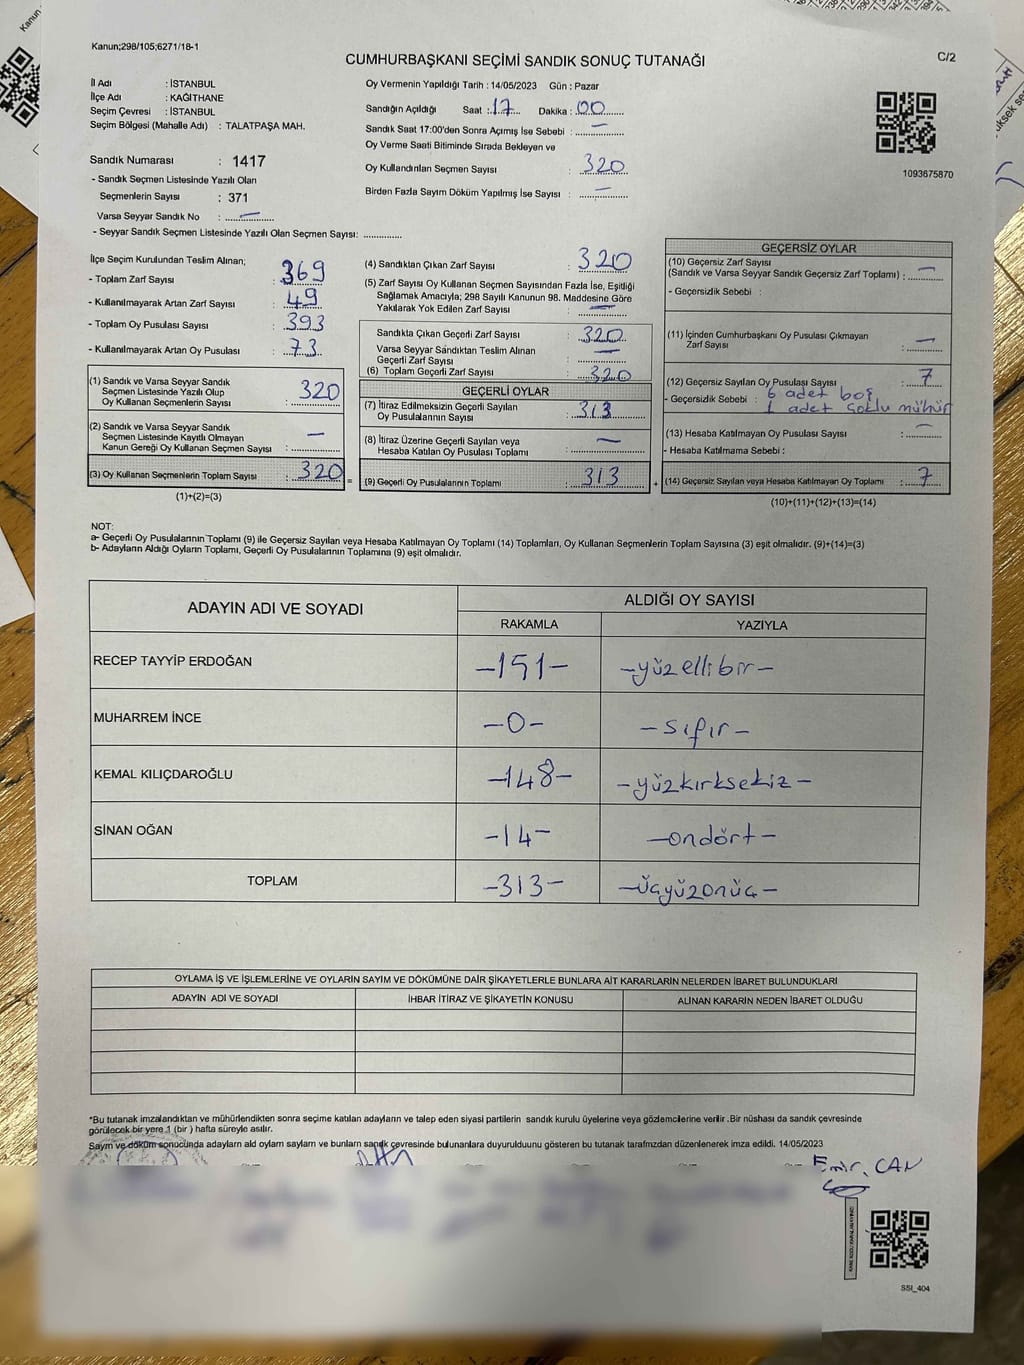 Kanun;298/105;6271/18-1
CUMHURBAŞKANI SEÇİMİ SANDIK SONUÇ TUTANAĞI
C/2
İl Adı : İSTANBUL
İlçe Adı : KAĞITHANE
Seçim Çevresi : İSTANBUL
Seçim Bölgesi (Mahalle Adı) : TALATPAŞA MAH.
Oy Vermenin Yapıldığı Tarih : 14/05/2023 Gün : Pazar
Sandığın Açıldığı Saat : 17 Dakika : 00
Sandık Saat 17:00'den Sonra Açımış İse Sebebi : —
Oy Verme Saati Bitiminde Sırada Bekleyen ve
Oy Kullandırılan Seçmen Sayısı : 320
Birden Fazla Sayım Döküm Yapılmış İse Sayısı : —
1093675870
Sandık Numarası : 1417
- Sandık Seçmen Listesinde Yazılı Olan
Seçmenlerin Sayısı : 371
Varsa Seyyar Sandık No : —
- Seyyar Sandık Seçmen Listesinde Yazılı Olan Seçmen Sayısı: ..............
İlçe Seçim Kurulundan Teslim Alınan;
- Toplam Zarf Sayısı : 369
- Kullanılmayarak Artan Zarf Sayısı : 49
- Toplam Oy Pusulası Sayısı : 393
- Kullanılmayarak Artan Oy Pusulası : 73
(1) Sandık ve Varsa Seyyar Sandık
Seçmen Listesinde Yazılı Olup
Oy Kullanan Seçmenlerin Sayısı : 320
(2) Sandık ve Varsa Seyyar Sandık
Seçmen Listesinde Kayıtlı Olmayan
Kanun Gereği Oy Kullanan Seçmen Sayısı : —
(3) Oy Kullanan Seçmenlerin Toplam Sayısı : 320
(1)+(2)=(3)
(4) Sandıktan Çıkan Zarf Sayısı : 320
(5) Zarf Sayısı Oy Kullanan Seçmen Sayısından Fazla İse, Eşitliği
Sağlamak Amacıyla; 298 Sayılı Kanunun 98. Maddesine Göre
Yakılarak Yok Edilen Zarf Sayısı : —
Sandıkta Çıkan Geçerli Zarf Sayısı : 320
Varsa Seyyar Sandıktan Teslim Alınan
Geçerli Zarf Sayısı : —
(6) Toplam Geçerli Zarf Sayısı : 320
GEÇERLİ OYLAR
(7) İtiraz Edilmeksizin Geçerli Sayılan
Oy Pusulalarının Sayısı : 313
(8) İtiraz Üzerine Geçerli Sayılan veya
Hesaba Katılan Oy Pusulası Toplamı : —
= (9) Geçerli Oy Pusulalarının Toplamı : 313
GEÇERSİZ OYLAR
(10) Geçersiz Zarf Sayısı
(Sandık ve Varsa Seyyar Sandık Geçersiz Zarf Toplamı) : —
- Geçersizlik Sebebi :
(11) İçinden Cumhurbaşkanı Oy Pusulası Çıkmayan
Zarf Sayısı : —
(12) Geçersiz Sayılan Oy Pusulası Sayısı : 7
- Geçersizlik Sebebi : 6 adet boş
1 adet çoklu mühür
(13) Hesaba Katılmayan Oy Pusulası Sayısı : —
- Hesaba Katılmama Sebebi :
+ (14) Geçersiz Sayılan veya Hesaba Katılmayan Oy Toplamı : 7
(10)+(11)+(12)+(13)=(14)
NOT:
a- Geçerli Oy Pusulalarının Toplamı (9) ile Geçersiz Sayılan veya Hesaba Katılmayan Oy Toplamı (14) Toplamları, Oy Kullanan Seçmenlerin Toplam Sayısına (3) eşit olmalıdır. (9)+(14)=(3)
b- Adayların Aldığı Oyların Toplamı, Geçerli Oy Pusulalarının Toplamına (9) eşit olmalıdır.
ADAYIN ADI VE SOYADI
ALDIĞI OY SAYISI
RAKAMLA YAZIYLA
RECEP TAYYİP ERDOĞAN -151- -yüzellibir-
MUHARREM İNCE -0- -sıfır-
KEMAL KILIÇDAROĞLU -148- -yüzkırksekiz-
SİNAN OĞAN -14- -ondört-
TOPLAM -313- -üçyüzonüç-
OYLAMA İŞ VE İŞLEMLERİNE VE OYLARIN SAYIM VE DÖKÜMÜNE DAİR ŞİKAYETLERLE BUNLARA AİT KARARLARIN NELERDEN İBARET BULUNDUKLARI
ADAYIN ADI VE SOYADI İHBAR İTİRAZ VE ŞİKAYETİN KONUSU ALINAN KARARIN NEDEN İBARET OLDUĞU
*Bu tutanak imzalandıktan ve mühürlendikten sonra seçime katılan adayların ve talep eden siyasi partilerin sandık kurulu üyelerine veya gözlemcilerine verilir .Bir nüshası da sandık çevresinde
görülecek bir yere 1 (bir ) hafta süreyle asılır.
Sayım ve döküm sonucunda adayların ald oylam saylam ve bunlarn sandık çevresinde bulunanlara duyurulduunu gösteren bu tutanak tarafmzdan düzenlenerek imza edildi. 14/05/2023
Emir. CAN
SSI_404